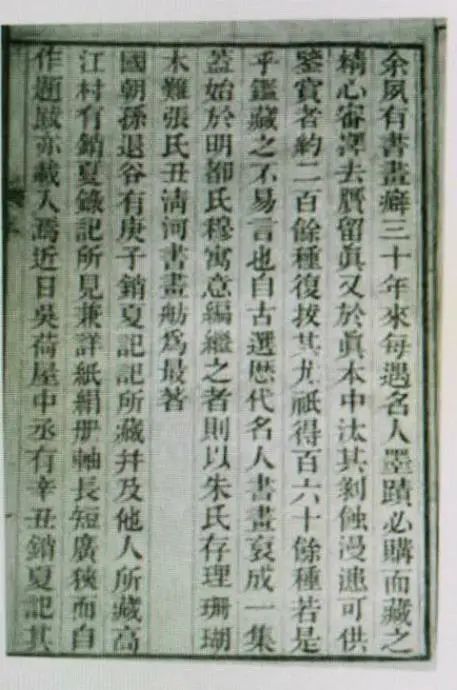 余夙有書畫癖三十年來每遇名人墨蹟必購而藏之
精心審澤去贋留眞又於眞本中汰其剝蝕漫漶可供
鑒賞者約二百餘種復拔其尤祇得百六十餘種若是
乎鑑藏之不易言也自古選歴代名人書畫裒成一集
蓋始於明都氏穆寓意編繼之者則以朱氏存理珊瑚
木難張氏丑淸河書畫舫爲最著
國朝孫退谷有庚子銷夏記記所藏幷及他人所藏高
江村有銷夏錄記所見兼詳紙絹册軸長短廣狹而自
作題䟦亦載入焉近日吳荷屋中丞有辛丑銷夏記其